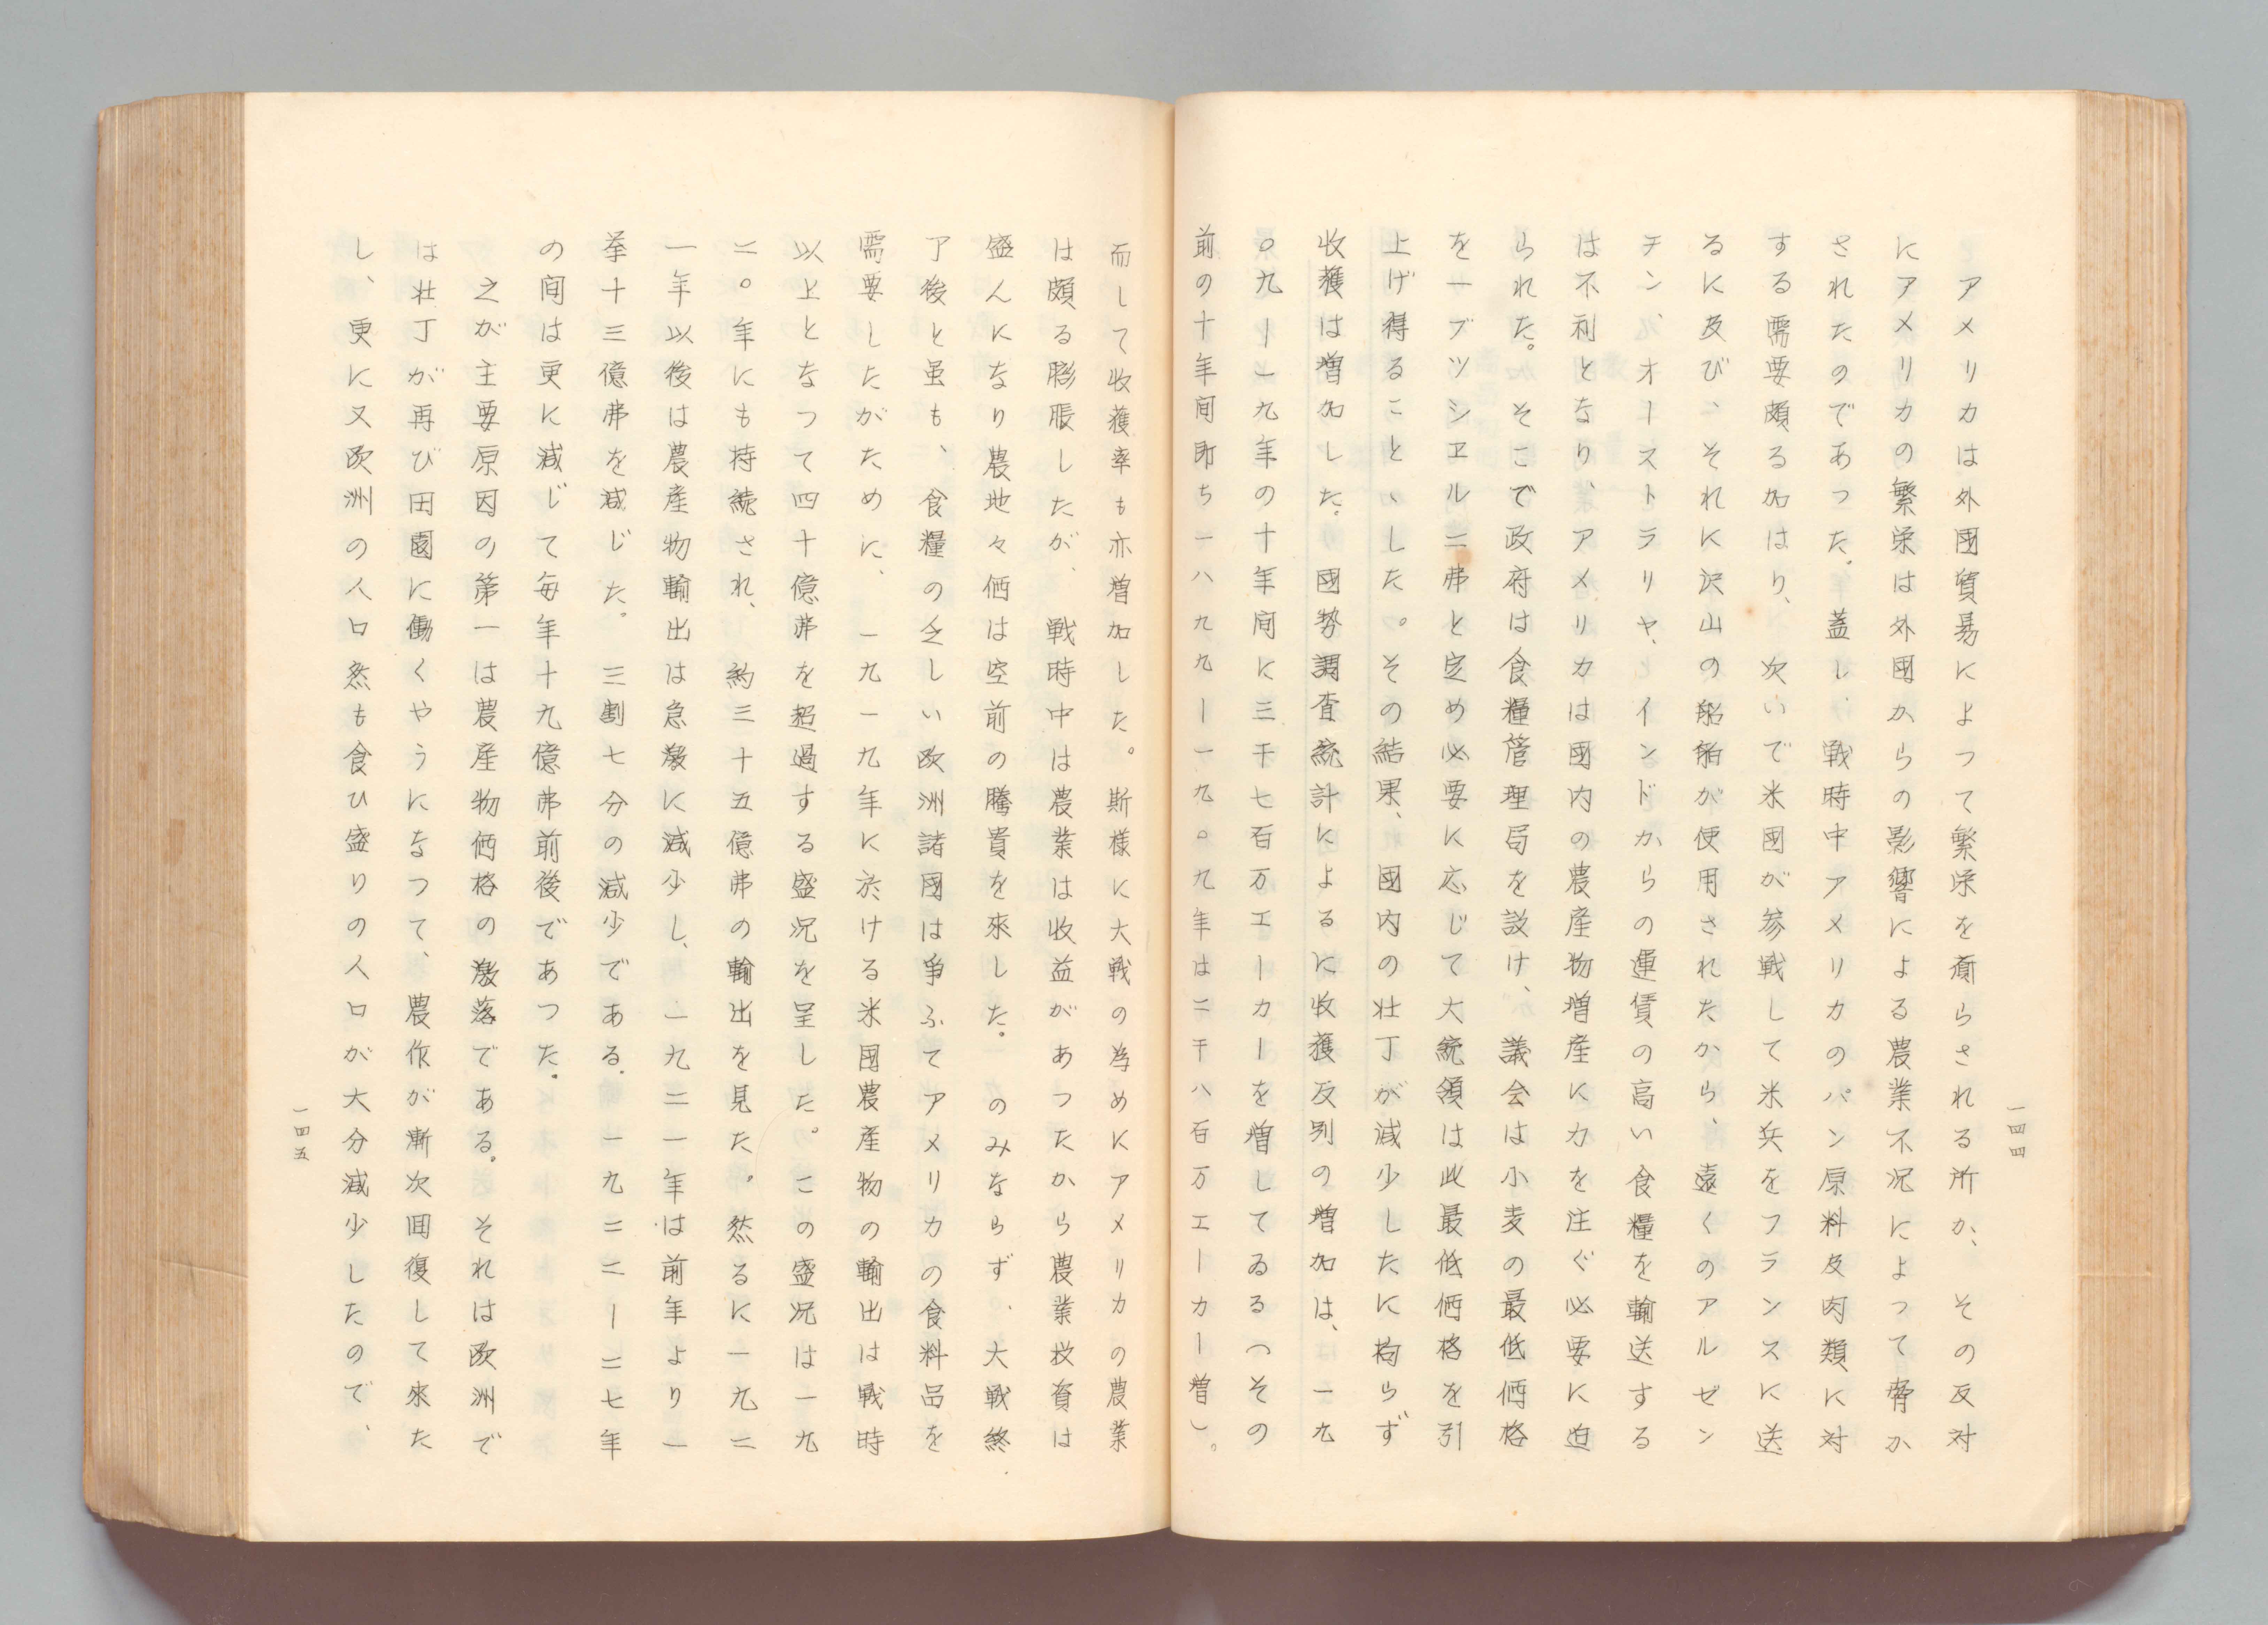 一四四
アメリカは外國貿易によつて繁栄を齎らされる所か、その反対
にアメリカの繁栄は外國からの影響による農業不況によつて脅か
されたのであつた。蓋し、戦時中アメリカのパン原料及肉類に対
する需要頗る加はり、次いで米國が参戦して米兵をフランスに送
るに及び、それに沢山の船舶が使用されたから、遠くのアルゼン
チン、オーストラリヤ、インドからの運賃の高い食糧を輸送する
は不利となり、アメリカは國内の農産物増産に力を注ぐ必要に迫
られた。そこで政府は食糧管理局を設け、議会は小麦の最低価格
を一ブツシエル二弗と定め必要に応じて大統領は此最低価格を引
上げ得ることゝした。その結果、國内の壮丁が減少したに拘らず
收獲は増加した。國勢調査統計によるに收獲反別の増加は、一九
〇九ー一九年の十年间に三千七百万エーカーを増してゐる（その
前の十年间即ち一八九九ー一九〇九年は二千八百万エーカー増）。
而して收獲率も亦増加した。斯様に大戦の為めにアメリカの農業
は頗る膨脹したが、戦時中は農業は收益があつたから農業投資は
盛んになり農地々価は空前の騰貴を來した。のみならず、大戦終
了後と虽も、食糧の乏しい欧洲諸國は争ふてアメリカの食料品を
需要したがために、一九一九年に於ける米国農産物の輸出は戰時
以上となつて四十億弗を超過する盛況を呈した。この盛況は一九
二〇年にも持続され、約三十五億弗の輸出を見た。然るに一九二
一年以後は農産物輸出は急激に減少し、一九二一年は前年より一
挙十三億弗を減じた。三割七分の減少である。一九二二ー二七年
の间は更に減じて毎年十九億弗前後であつた。
之が主要原因の第一は農産物価格の激落である。それは欧洲で
は壮丁が再び田園に働くやうになつて、農作が漸次囬復して來た
し、更に又欧洲の人口然も食ひ盛りの人口が大分減少したので、
一四五